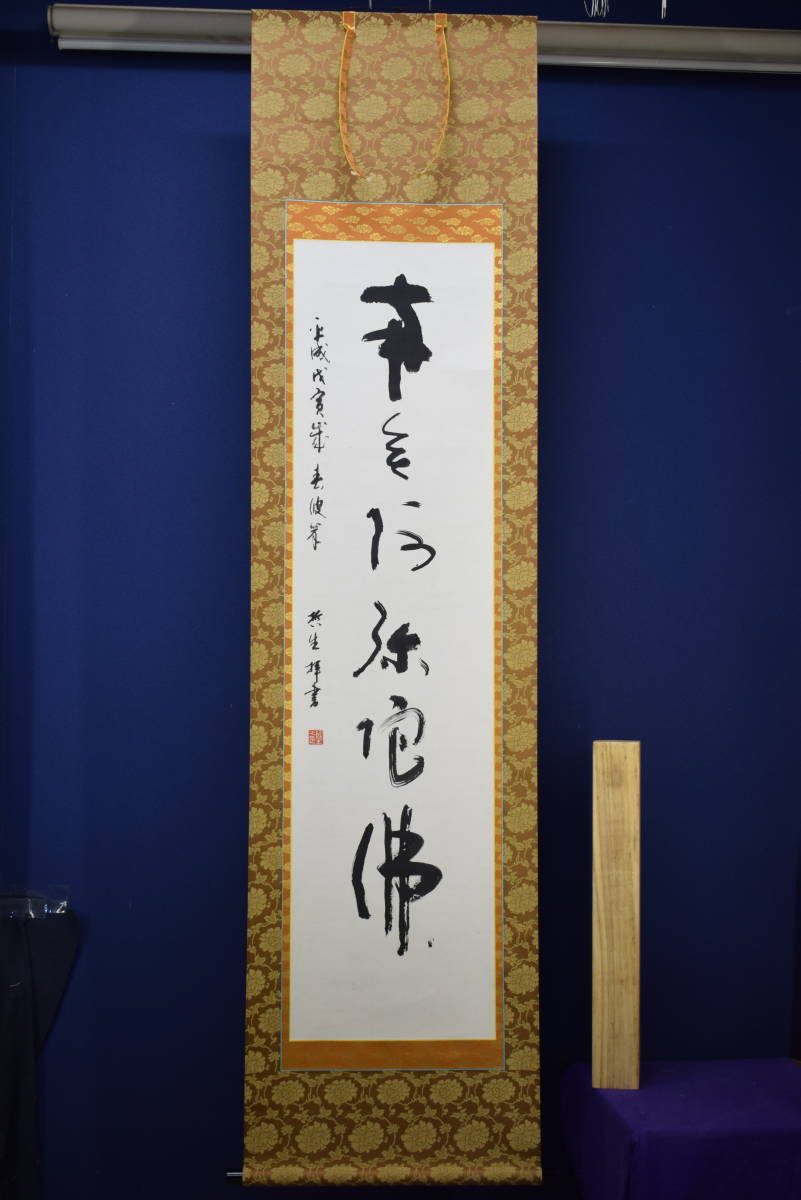 南無阿弥陀佛
平成戊寅歳 春彼岸
哲生拝書